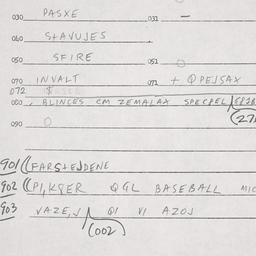 030 PASXE 031 -
040 StAVUJES
050 SFIRE 051
070 INVALT 072 + QPEJSAX
072 $
080 , BLINCES CM ZEMALAX SPECPEL
090 O
901 ((FARStEJDENE
902 ((PI,KSER QGL BASEBALL MIC
903 VAZE,J QI VI AZOJ
(002)